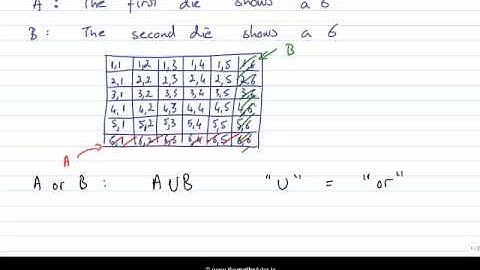 A : The first die shows a 6
B : The second die shows a 6
B
1,1 1,2 1,3 1,4 1,5 1,6
2,1 2,2 2,3 2,4 2,5 2,6
3,1 3,2 3,3 3,4 3,5 3,6
4,1 4,2 4,3 4,4 4,5 4,6
5,1 5,2 5,3 5,4 5,5 5,6
6,1 6,2 6,3 6,4 6,5 6,6
A
A or B : A∪B "∪" = "or"